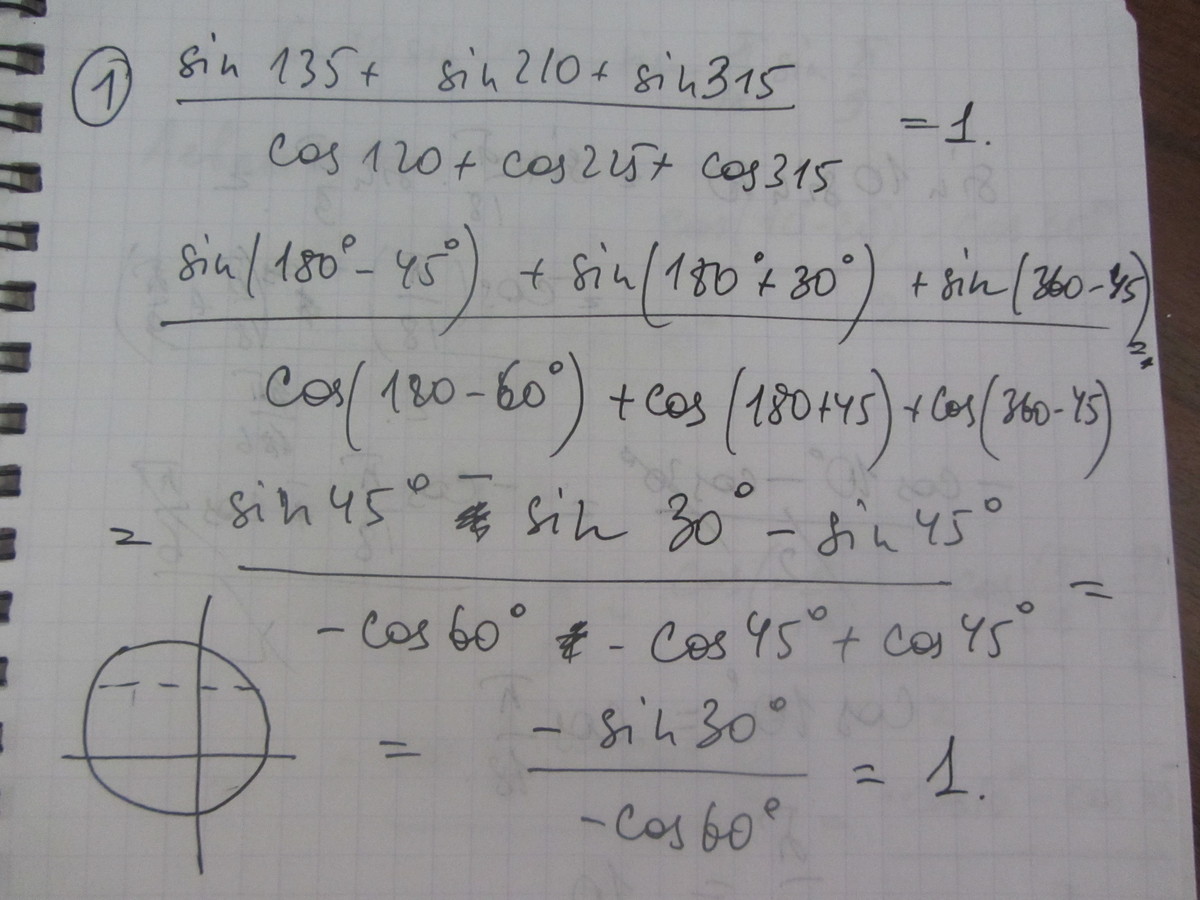 ① sin 135 + sin 210 + sin 315
= 1.
cos 120 + cos 225 + cos 315
sin(180° - 45°) + sin(180° + 30°) + sin(360 - 45)
=
cos(180 - 60°) + cos(180 + 45) + cos(360 - 45)
= sin 45° - sin 30° - sin 45°
=
-cos 60° - cos 45° + cos 45°
= - sin 30°
= 1.
-cos 60°